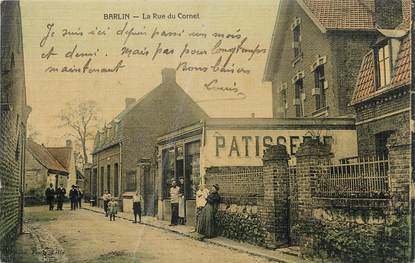 BARLIN - La Rue du Cornet
Je suis ici depuis un mois
et demi. Mais pas pour longtemps
maintenant. Bons baisers
Louis
PATISSERIE